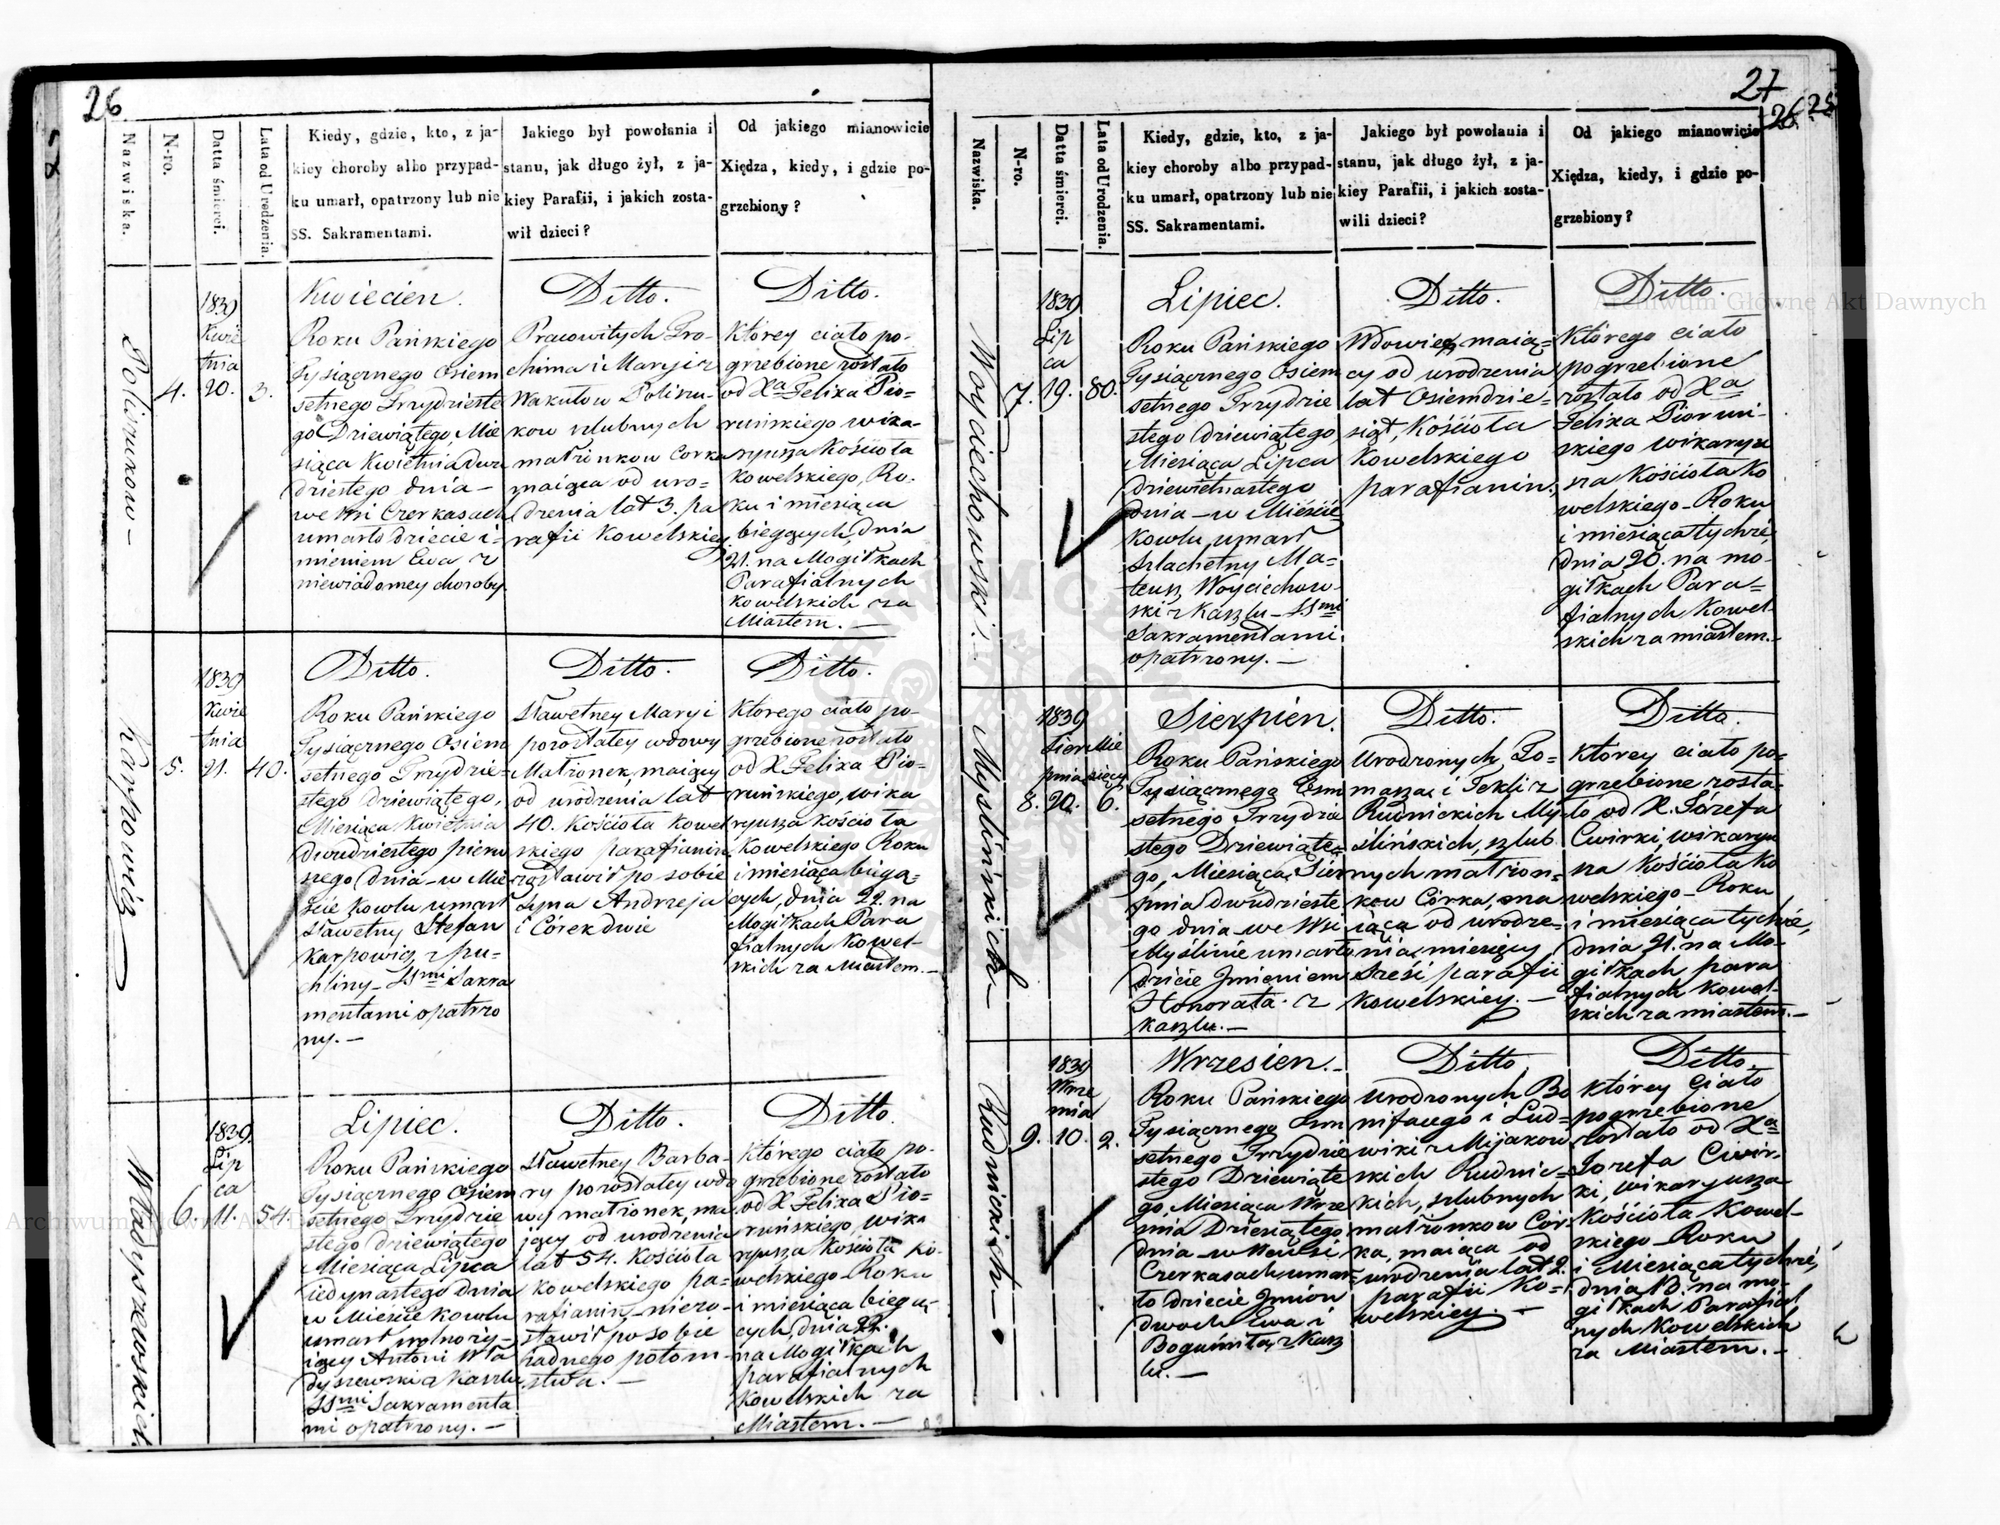 26
Nazwiska.
N-ro.
Datta śmierci.
Lata od Urodzenia.
Kiedy, gdzie, kto, z ja-
kiey choroby albo przypad-
ku umarł, opatrzony lub nie
SS. Sakramentami.
Jakiego był powołania i
stanu, jak długo żył, z ja-
kiey Parafii, i jakich zosta-
wił dzieci?
Od jakiego mianowicie
Xiędza, kiedy, i gdzie po-
grzebiony?
Polinukow –
4.
1839
Kwie
tnia
20.
3.
Kwiecien.
Roku Pańskiego
Tysiącznego Osiem
setnego Trzydzieste
go Dziewiątego, Mie
siąca Kwietnia dwu
dziestego dnia –
we Wsi Czerkasach
umarło dziecie i-
mieniem Ewa z
niewiadomey choroby.
Ditto.
Pracowitych Tro-
chima i Maryi z
Wakułow Polinu-
kow szlubnych
małżonkow Corka
maiąca od uro=
dzenia lat 3. pa
rafii Kowelskiey
Ditto.
Którey ciało po-
grzebione zostało
od Xa Felixa Pio-
runskiego wika-
ryusza Kościoła
Kowelskiego, Ro-
ku i miesiąca
bieggcych, dnia
21. na Mogiłkach
Parafialnych
Kowelskich za
Miastem. –
Karpowicz
5.
1839
Kwie
tnia
21.
40.
Ditto.
Roku Pańskiego
Tysiącznego Osiem
setnego Trzydzie-
stego dziewiątego,
Miesiąca Kwietnia
dwudziestego pierw
szego dnia – w Mie
ście Kowlu umarł
Sławetny Stefan
Karpowicz z pu=
chliny – SSmi Sakra
mentami opatrzo
ny. –
Ditto.
Sławetney Maryi
pozostałey wdowy
Małżonek, maiący
od urodzenia lat
40. Kościoła Kowel
skiego parafianin
zostawił po sobie
Syna Andrzeja
i Córek dwie
Ditto.
Którego ciało po-
grzebione zostało
od X. Felixa Pio=
runskiego, wika
ryusza Kościoła
Kowelskiego Roku
i miesiąca biegą=
cych, dnia 22. na
Mogiłkach Para
fialnych Kowel-
skich za Miastem. –
Władyszewskich.
6.
1839
Lip
ca
11.
54
Lipiec.
Roku Pańskiego
Tysiącznego Osiem
setnego Trzydzie
stego dziewiątego
Miesiąca Lipca
iedynastego dnia
w Mieście Kowlu
umarł
iący Antoni Wła
dyszewski z Kaszlu
SSmi Sakramenta
mi opatrzony. –
Ditto.
Sławetney Barba-
ry pozostałey wdo
wy małżonek, ma
jący od urodzenia
lat 54. Kościoła
Kowelskiego pa=
rafianin, niezo-
stawił po sobie
żadnego potom-
stwa. –
Ditto.
Którego ciało po-
grzebione zostało
od X. Felixa Pio=
runskiego, wika
ryusza Kościoła Ko-
welskiego Roku
i miesiąca biegą-
cych, dnia 22.
na Mogiłkach
parafialnych
Kowelskich za
Miastem. –
27
26. 25
Nazwiska.
N-ro.
Datta śmierci.
Lata od Urodzenia.
Kiedy, gdzie, kto, z ja-
kiey choroby albo przypad-
ku umarł, opatrzony lub nie
SS. Sakramentami.
Jakiego był powołania i
stanu, jak długo żył, z ja-
kiey Parafii, i jakich zosta-
wili dzieci?
Od jakiego mianowicie
Xiędza, kiedy, i gdzie po-
grzebiony?
Woyciechowski.
7.
1839
Lip
ca
19.
80.
Lipiec.
Roku Pańskiego
Tysiącznego Osiem
setnego Trzydzie
stego dziewiątego
Miesiąca Lipca
dziewietnastego
dnia – w Mieście
Kowlu, umarł
Szlachetny Ma-
teusz Woyciechow-
ski z Kaszlu – SSmi
Sakramentami
opatrzony. –
Ditto.
Wdowiec, maią-
cy od urodzenia
lat Osiemdzie-
siąt, Kościoła
Kowelskiego
parafianin.
Ditto.
Którego ciało
pogrzebione
zostało od Xa
Felixa Pioruni-
skiego wikaryu
sza Kościoła Ko
welskiego – Roku
i miesiąca tychże
dnia 20. na mo-
giłkach Para=
fialnych Kowel-
skich za miastem. –
Myslińskich –
8.
1839
Sier
pnia
20.
Mie
sięcy
6.
Sierpień.
Roku Pańskiego
Tysiącznego Osm
setnego Trzydzie
stego Dziewiąte=
go, Miesiąca Sier
pnia dwudzieste
go dnia – we Wsi
Myślinie umarło
dziecie Imieniem
Honorata z
kaszlu. –
Ditto.
Urodzonych, To-
masza i Tekli z
Rudnickich My-
ślińskich, szlub
nych małżon=
kow Córka, ma
iąca od urodze-
nia, miesięcy
sześć, parafii
Kowelskiey. –
Ditto.
Którey ciało po-
grzebione zosta-
ło od X. Józefa
Cwirki, wikaryu
sza Kościoła Ko
welskiego – Roku
i miesiąca tychże,
dnia 21. na Mo-
giłkach para
fialnych Kowel-
skich za miastem. –
Rudnickich –
9.
1839
Wrze
śnia
10.
2.
Wrzesien. –
Roku Pańskiego
Tysiącznego Osm
setnego Trzydzie
stego Dziewiąte
go, Miesiąca Wrze
śnia Dziesiątego
dnia – w Wsi
Czerkasach, umar=
ło dziecie Imion
dwoch Ewa i
Bogumiła, z Kasz
lu. –
Ditto
Urodzonych Bo
nifacego i Lud-
wiki z Mijakow
skich Rudnic=
kich, szlubnych
małżonkow Cór
ka, maiąca od
urodzenia lat 2.
parafii Ko=
welskiey. –
Ditto.
Którey Ciało
pogrzebione
zostało od Xa
Jozefa Cwir-
ki, wikaryusza
Kościoła Kowel-
skiego – Roku
i Miesiąca tychże,
dnia 13. na mo-
giłkach Parafial
nych Kowelskich
za Miastem. –
Archiwum Główne Akt Dawnych
Archiwum Główne Akt Dawnych